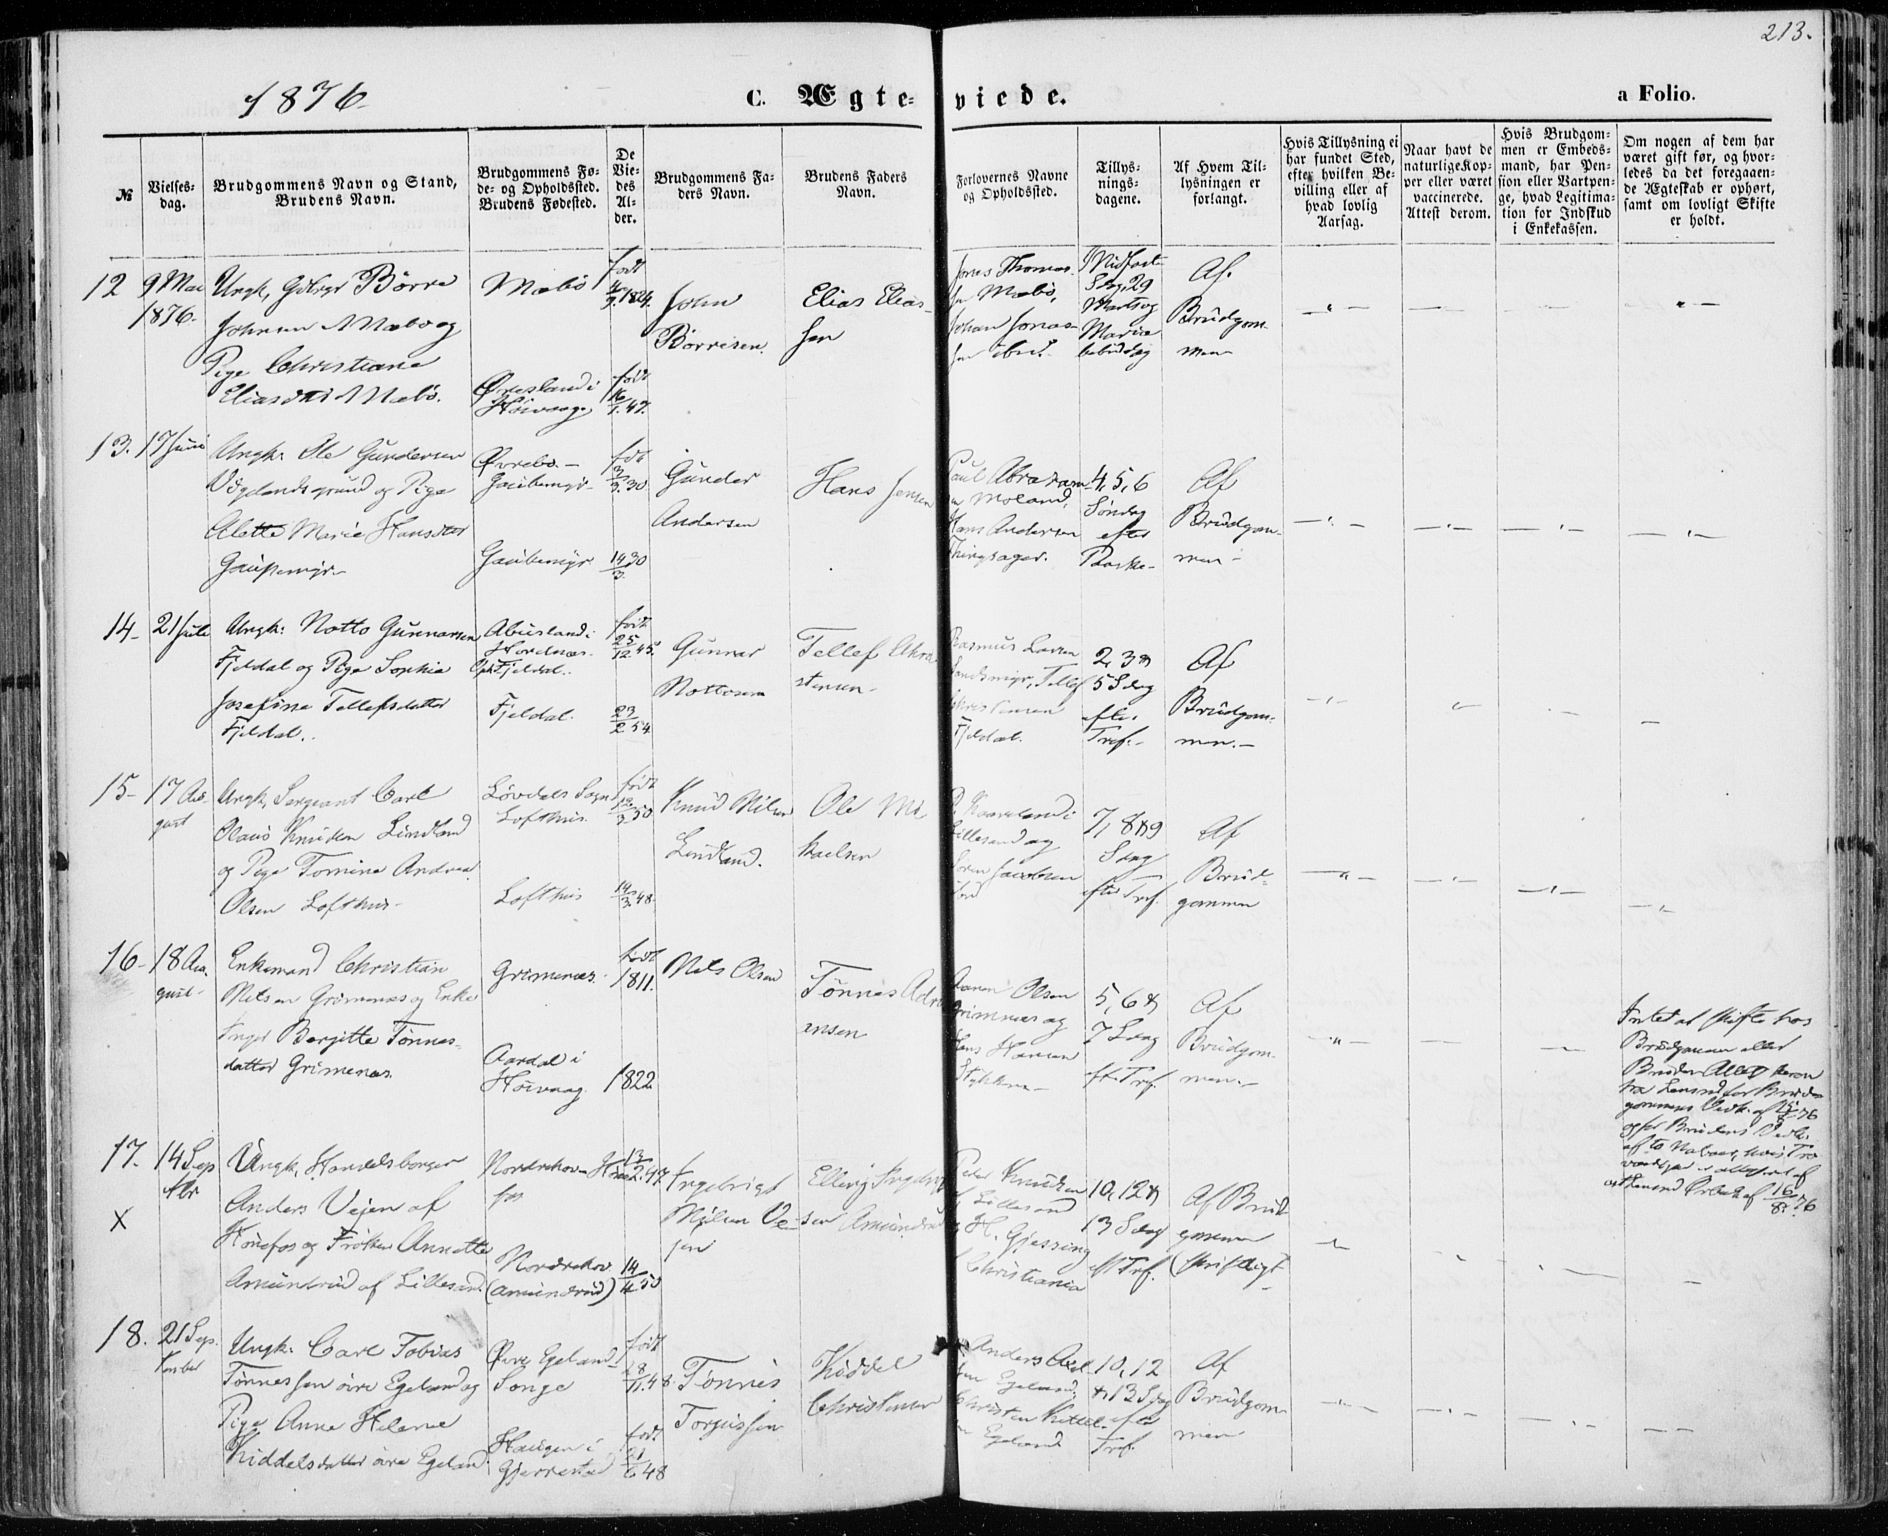 213.
1876
C. Ægte-
viede.
a Folio.
№
Vielses-
dag.
Brudgommens Navn og Stand,
Brudens Navn.
Brudgommens Fø-
de- og Opholdssted.
Brudens Fødested.
De
Vie-
des
Al-
der.
Brudgommens Fa-
ders Navn.
Brudens Faders
Navn.
Forlovernes Navne
og Opholdssted.
Tillys-
nings-
dagene.
Af Hvem Til-
lysningen er
forlangt.
Hvis Tillysning ei
har fundet Sted,
efter hvilken Be-
villing eller af
hvad lovlig
Aarsag.
Naar havt de
naturlige Kop-
per eller været
vaccinerede.
Attest derom.
Hvis Brudgom-
men er Embeds-
mand, har Pen-
sion eller Vartpen-
ge, hvad Legitima-
tion for Indskud
i Enkekassen.
Om nogen af dem har
været gift før, og hvor-
ledes da det foregaaen-
de Ægteskab er ophørt,
samt om lovligt Skifte
er holdt.
12
9 Mai
1876.
Ungk, Børre
Mæbø og
Pige Christiane
Mæbø.
Mæbø
Øvresland i
Høivaag
født
1824.
født
16/1.47.
John
Børresen.
Elias Elias-
sen
Jonas Thomas-
sen Mæbø,
Johan Jonas-
sen ibid.
Midfaste
Sdg, 29
Marts og
Mariæ
Af
Brudgom-
men
13.
17 Juni
Ungk: Ole Gundersen
og Pige
Alette Marie Hansdtr
Gaupemyr
Øvrebø
Gaubemyr
Gaubemyr
født
3/3.30
14/3 30
Gunder
Andersen
Hans Jensen
Paul Abraham-
sen Moland,
Hans Andersen
Thingsager.
4, 5, 6
Søndag
efter
Paaske
Af
Brudgom-
men
14
21 Juli
Ungk: Notto Gunnarsen
Fjeldal og Pige Sophie
Josefine Tellefsdatter
Fjeldal.
Abusland i
Fjeldal.
Fjeldal.
født
25/12 45.
23/2 54
Gunnar
Nottosen
Tellef Chri
stensen
Rasmus Larsen
Sandsmyr, Tellef
Fjeldal.
2, 3 &
5 Sdag
efter
Tref.
Af
Brudgom-
men.
15
17 Au-
gust
Ungk, Sergeant Carl
Olaus Knudsen Lindland
og Pige Tomine Andrea
Olsen Lofthus
Løvdals Sogn
Lofthus.
Lofthus
født
50
14/3 48
Knud Nilsen
Lindland.
Ole Mi
kaelsen
Lillesand og
Søren Jacobsen
ibid
7, 8 & 9
Sdag
eft. Tref.
Af
Brud-
gommen
16
18 Au-
gust
Enkemand Christian
Nielsen Grimenæs og Enke
Inger Bergitte Tønnes-
datter Grimenæs.
Grimenæs.
Aardal i
Høivaag
født
1811.
1822
Niels Olsen
Tønnes Adri
ensen
Olsen
Grimnæs og
Hans Hansen
5, 6 &
7 Sdag
eft. Tref.
Af
Brudgom-
men.
Intet at skifte hos
Brudgommen eller
Bruden
16/8 76
17.
14 Sep
tbr
X
Ungk, Handelsborger
Anders Vejen af
Hønefos og Frøken Annette
Amundrud af Lillesand
Nordrehov Høne-
fos
Nordrehov
(Amundrud)
13/2.47.
14/4 50
Ingebrigt
Nilsen Ve-
jen
Elling Ingebrigt-
sen Amundrud
Peder Knudsen
af Lillesand
H. Gjessing
Christiania
10, 12 &
13 Sdag
eft Tref.
Af Brud
gommen
skriftligt
18.
21 Sep.
tember
Ungk: Carl Tobias
Tønnessen øvre Egeland og
Pige Anne Helene
Kiddelsdatter øvre Egeland
Øvre Egeland
Songe
Haugen i
Gjerrestad
født
28/11.48
født
48
Tønnes
Torjussen
Kiddel
Christensen
Anders Axel-
sen Egeland,
Christen Kittel-
sen Egeland
10, 12
& 13 Sdag
efter
Tref.
Af
Brudgom-
men